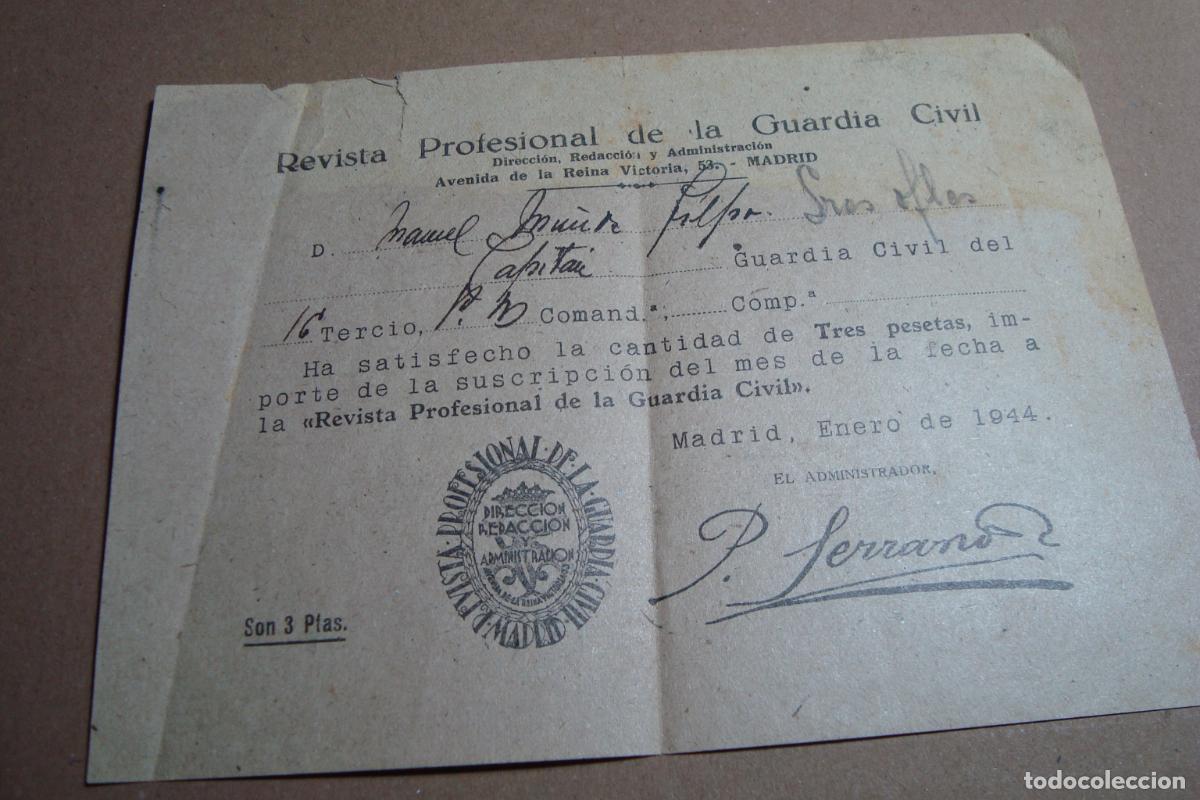 Revista Profesional de la Guardia Civil
Dirección, Redacción y Administración
Avenida de la Reina Victoria, 53. - MADRID
D. Manuel
Capitán Guardia Civil del
16 Tercio, Comand.ª, Comp.ª
Ha satisfecho la cantidad de Tres pesetas, im-
porte de la suscripción del mes de la fecha a
la «Revista Profesional de la Guardia Civil».
Madrid, Enero de 1944.
EL ADMINISTRADOR,
P. Serrano
REVISTA·PROFESIONAL·DE·LA·GUARDIA·CIVIL
·MADRID·
DIRECCION
REDACCION
Y
ADMINISTRACION
AVENIDA DE LA REINA VICTORIA 53
Son 3 Ptas.
todocoleccion